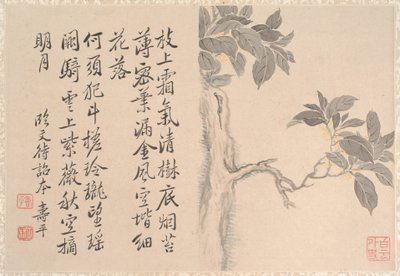 枝上霜氣清樹底烟苔
薄密葉漏金風空堦細
花落
何須犯斗槎玲瓏望瑤
闕騎雲上紫薇秋空摘
明月
臨文待詔本 壽平
白雲
外史